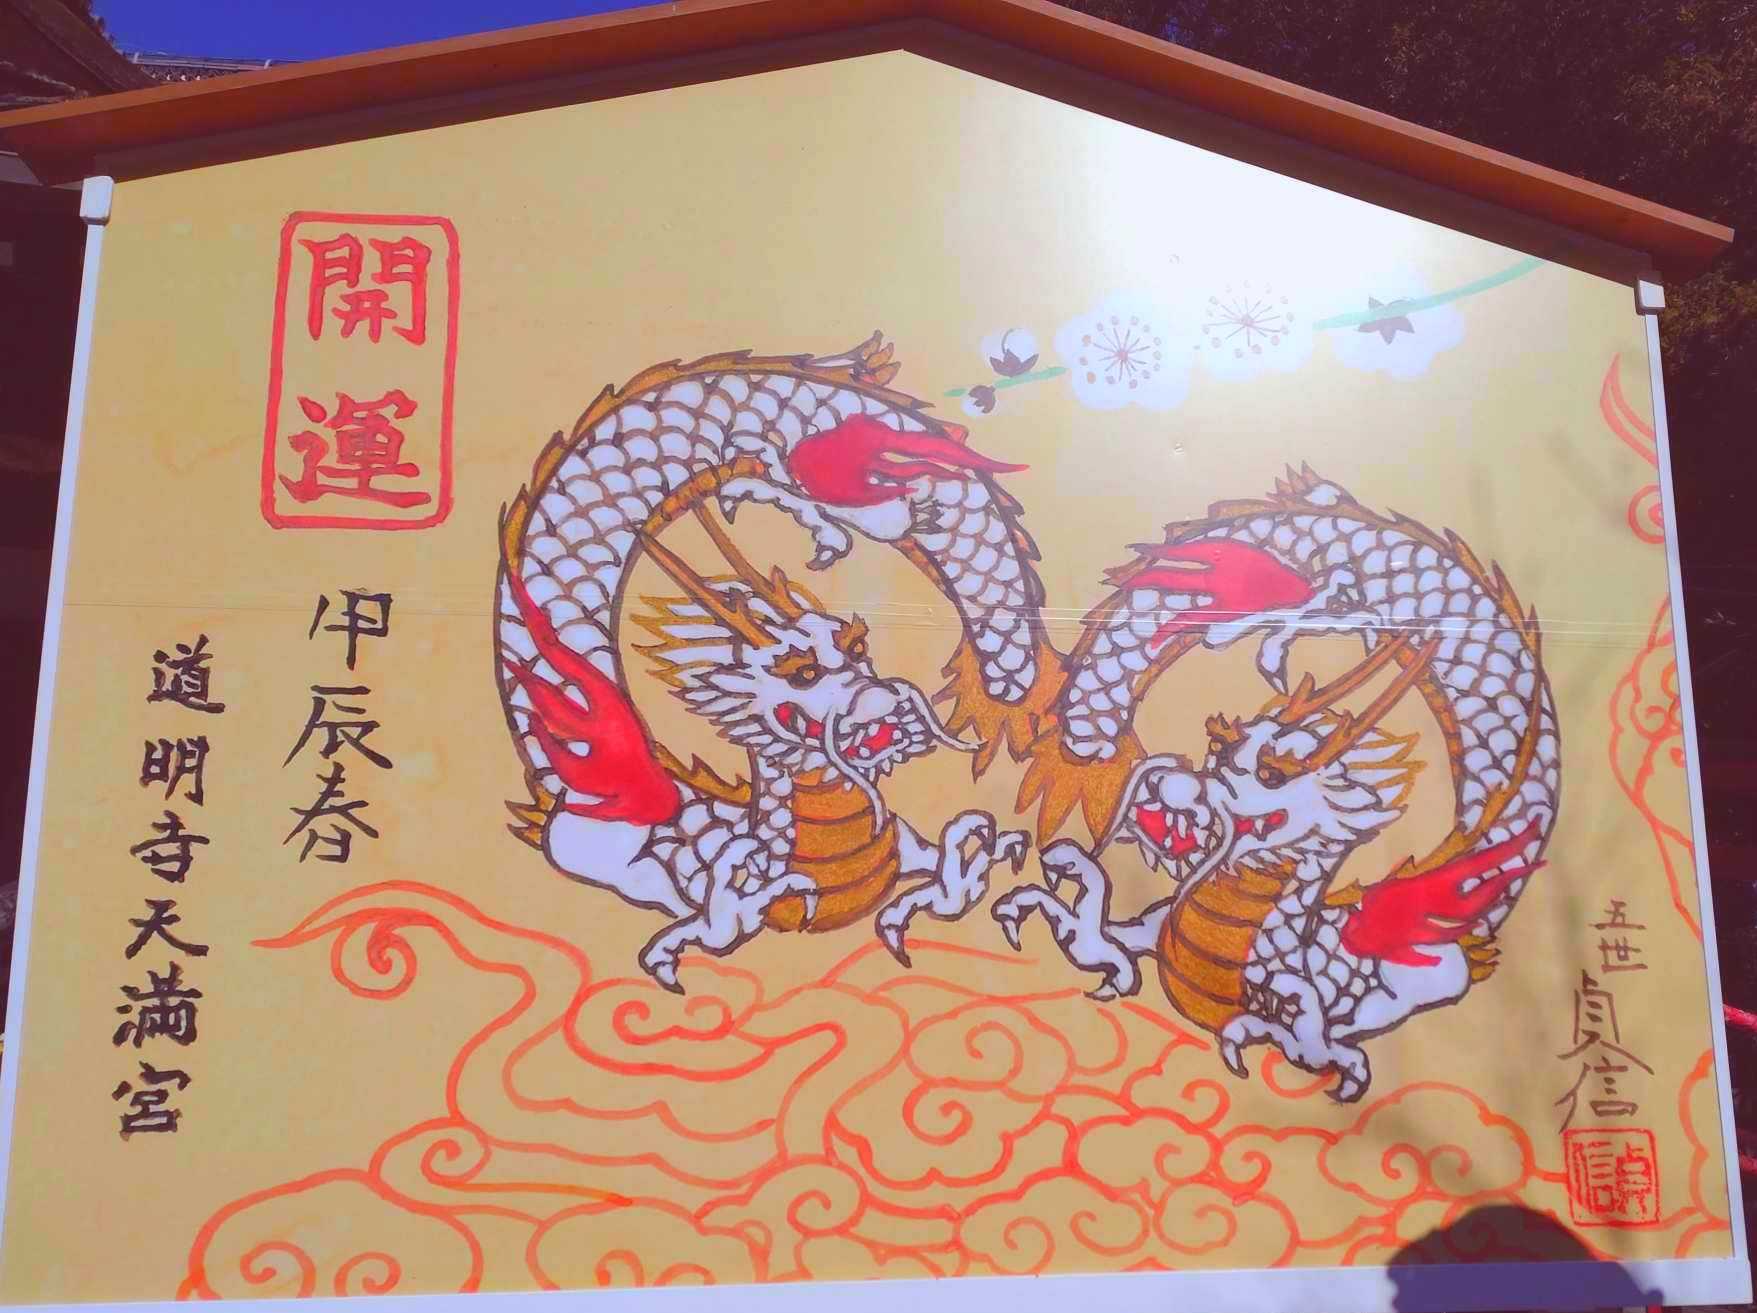 五世
貞信
開運
甲辰春
道明寺天満宮